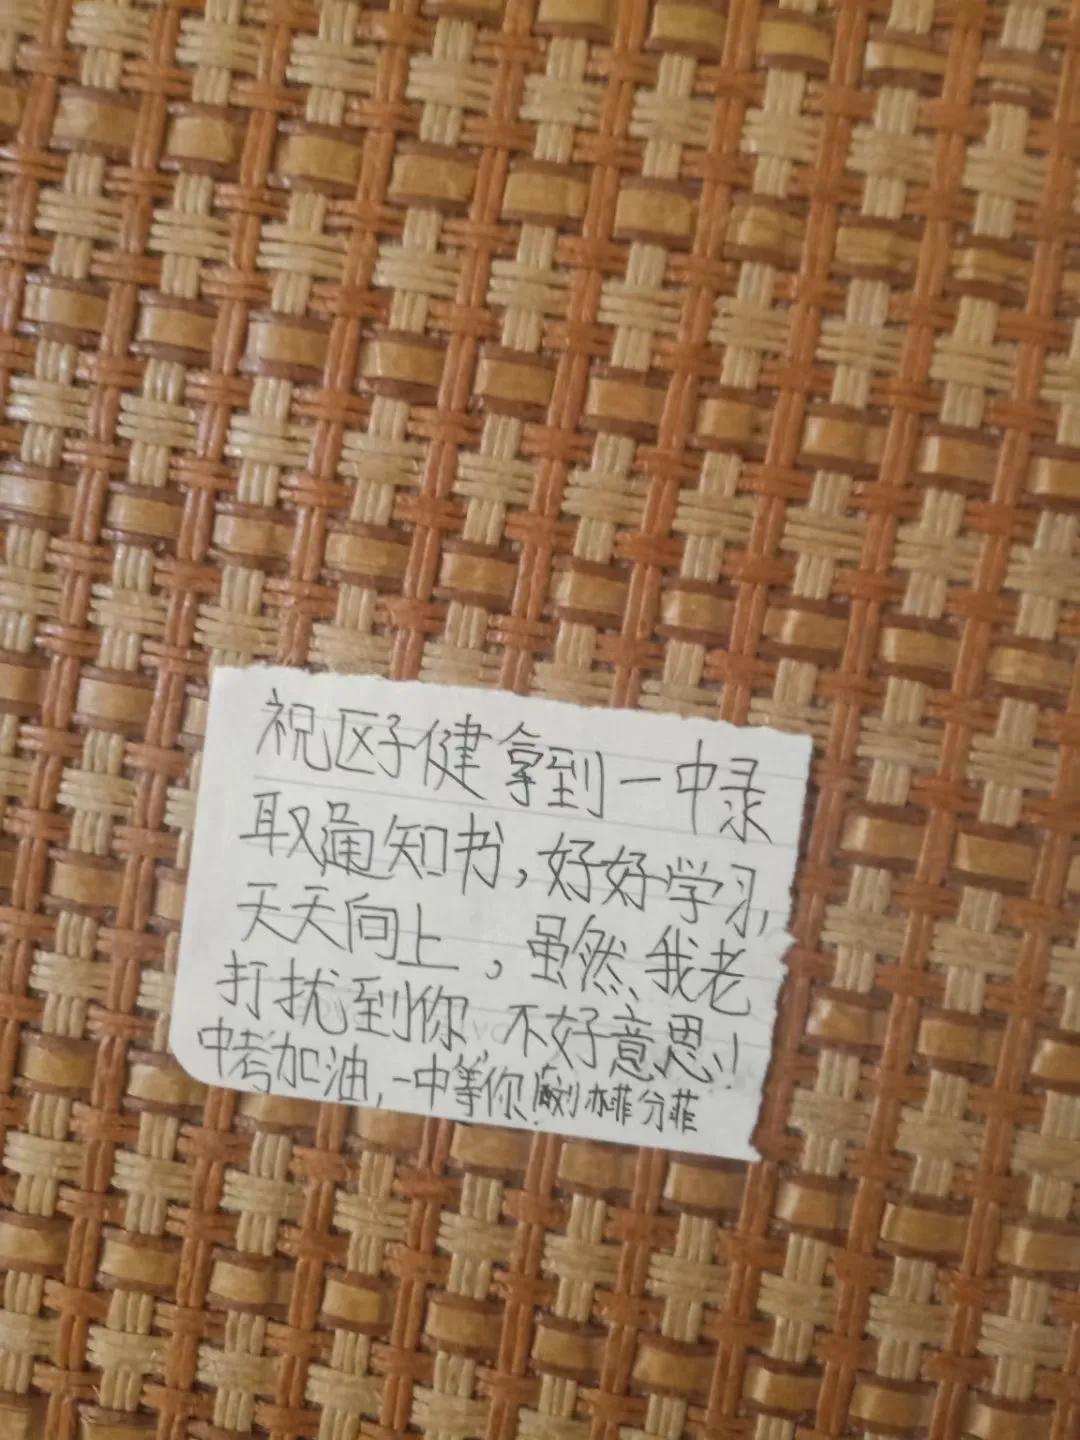 祝区子健拿到一中录
取通知书，好好学习，
天天向上，虽然我老
打扰到你 不好意思！
中考加油，一中等你！